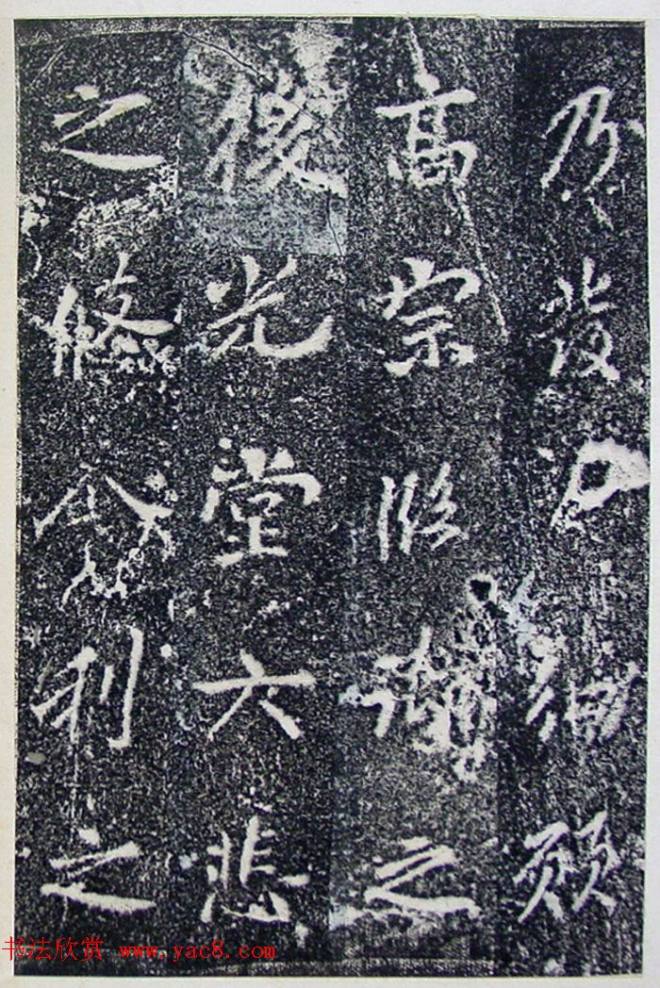 發願
高宗臨之
後光堂大悲
之修舍利之
书法欣赏 www.yac8.com